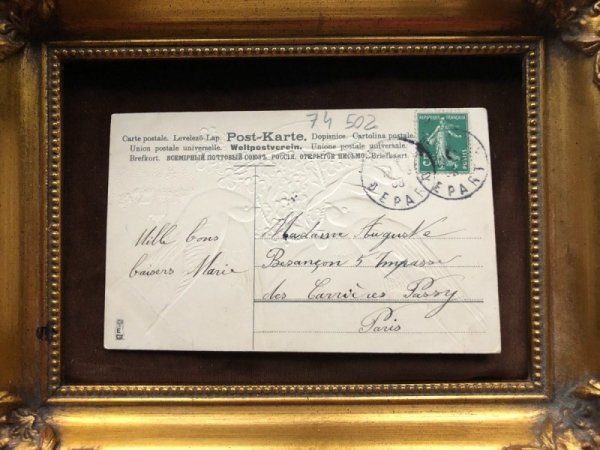 74 502
Carte postale. Levelező-Lap. Post-Karte. Dopisnice. Cartolina postale.
Union postale universelle. Weltpostverein. Unione postale universale.
Brefkort. ВСЕМІРНЫЙ ПОЧТОВЫЙ СОЮЗЪ. РОССІЯ. ОТКРЫТОЕ ПИСЬМО. Briefkaart.
REPUBLIQUE FRANÇAISE
5
POSTES
DEPART
DEPART
Mille bons
baisers Marie
Madame Auguste
Besançon 5 Impasse
des Carrières Passy
Paris